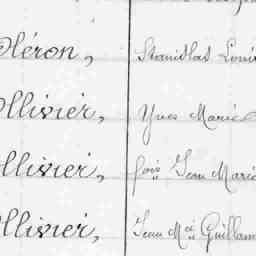 Oléron, Stanislas Loui
Ollivier, Yves Marie
Ollivier, fois Jean Marie
Ollivier, Jean Mie Guillaum